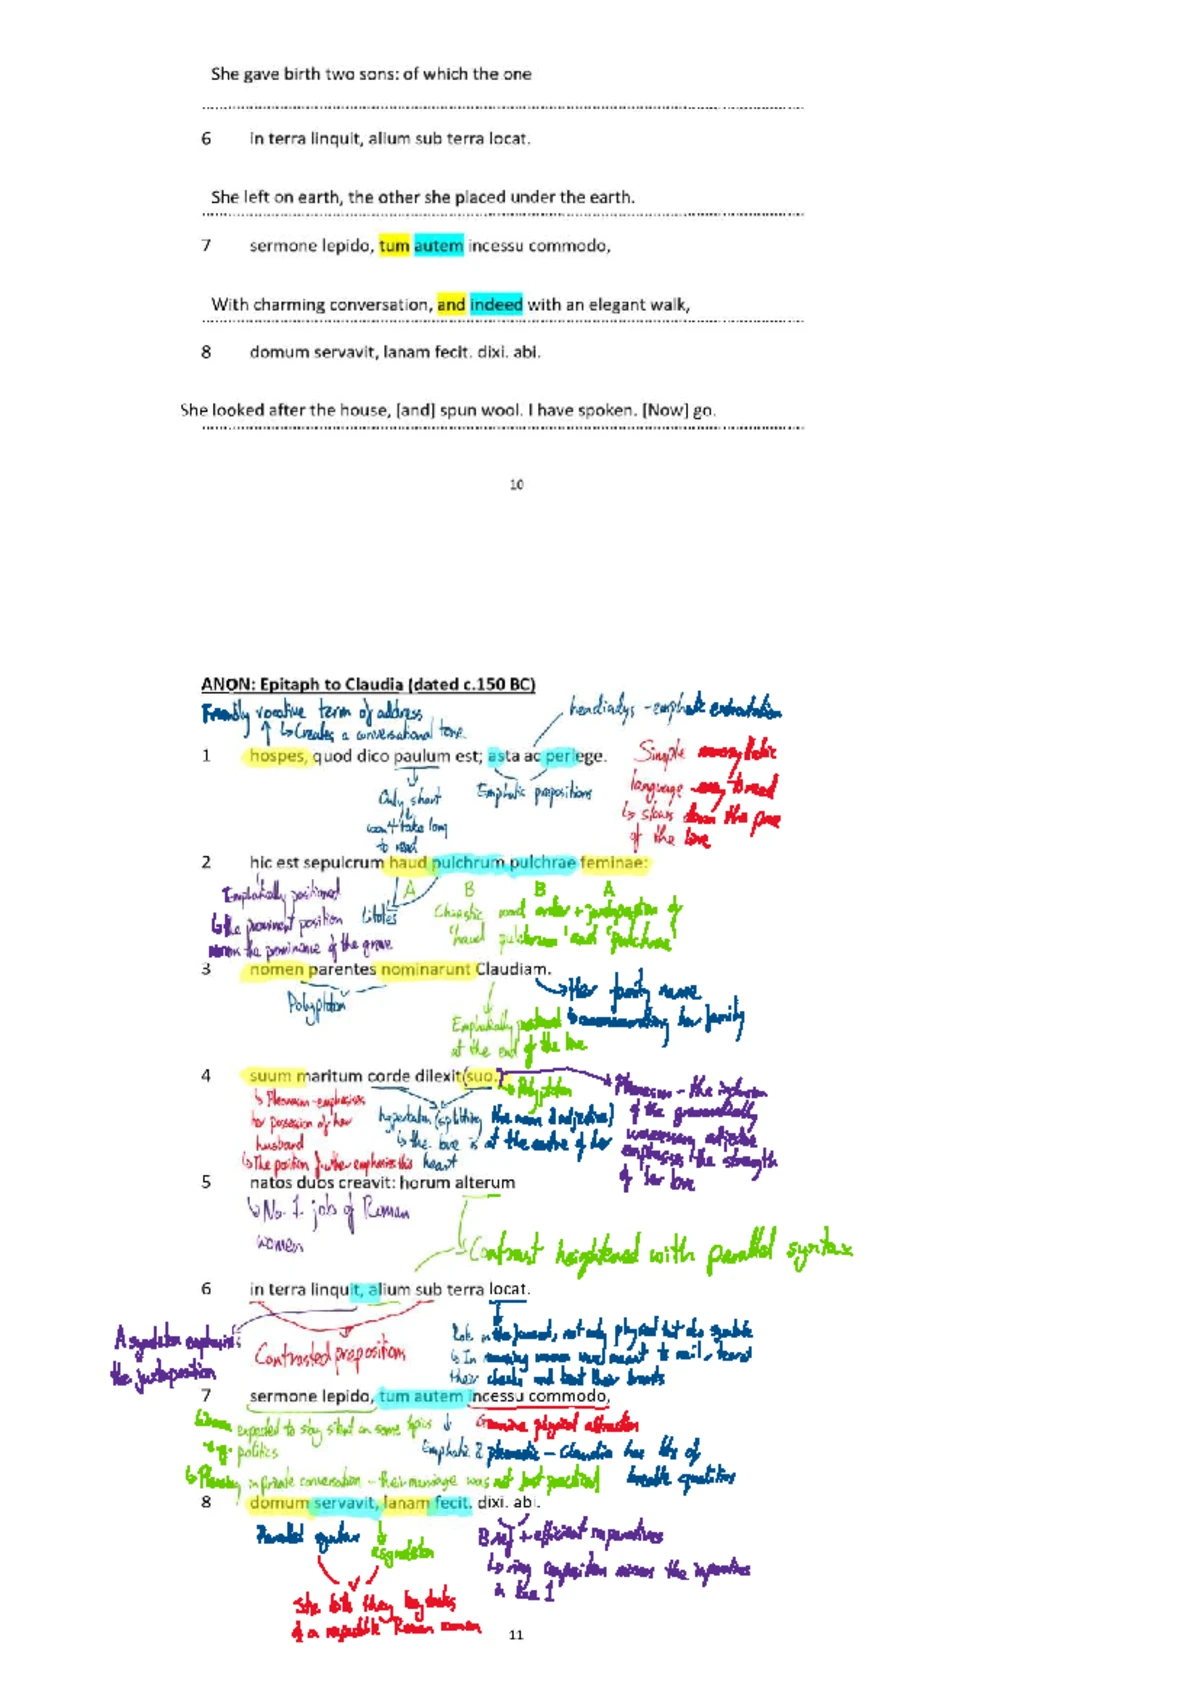 She gave birth two sons: of which the one
6 in terra linquit, alium sub terra locat.
She left on earth, the other she placed under the earth.
7 sermone lepido, tum autem incessu commodo,
With charming conversation, and indeed with an elegant walk,
8 domum servavit, lanam fecit. dixi. abi.
She looked after the house, [and] spun wool. I have spoken. [Now] go.
10
ANON: Epitaph to Claudia (dated c.150 BC)
Friendly vocative term of address
↳ Creates a conversational tone.
hendiadys - emphatic exhortation
1 hospes, quod dico paulum est; asta ac perlege.
Only short
won't take long
to read
Emphatic prepositions
Simple monosyllabic
language - easy to read
↳ slows down the pace
of the line
2 hic est sepulcrum haud pulchrum pulchrae feminae:
A B B A
Emphatically positioned
↳ the prominent position
mirrors the prominence of the grave
Litotes
Chiastic word order + juxtaposition of
'haud pulchrum' and 'pulchrae'
3 nomen parentes nominarunt Claudiam.
Polyptoton
Emphatically positioned
at the end of the line
Her family name
↳ commemorating her family
4 suum maritum corde dilexit (suo.)
↳ Pleonasm - emphasises
her possession of her
husband
↳ The position further emphasises this
hyperbaton (splitting the noun & adjective)
↳ the love is at the centre of her
heart
Polyptoton
Pleonasm - the inclusion
of the grammatically
unnecessary adjective
emphasises the strength
of her love
5 natos duos creavit: horum alterum
↳ No. 1. job of Roman
women
Contrast heightened with parallel syntax
6 in terra linquit, alium sub terra locat.
Asyndeton emphasises
the juxtaposition
Contrasted prepositions
Role in the funeral, not only physical but also symbolic
↳ In mourning women were meant to wail, tear
their cheeks and beat their breasts
7 sermone lepido, tum autem incessu commodo,
↳ Women expected to stay silent on some topics
e.g. politics
↳ Pleasing in private conversation - their marriage was not just practical
Genuine physical attraction
Emphatic & pleonastic - Claudia has lots of
likeable qualities
8 domum servavit, lanam fecit. dixi. abi.
Parallel syntax
asyndeton
Brief + efficient imperatives
↳ ring composition mirrors the imperatives
in line 1
She both
of a respectable Roman woman
11